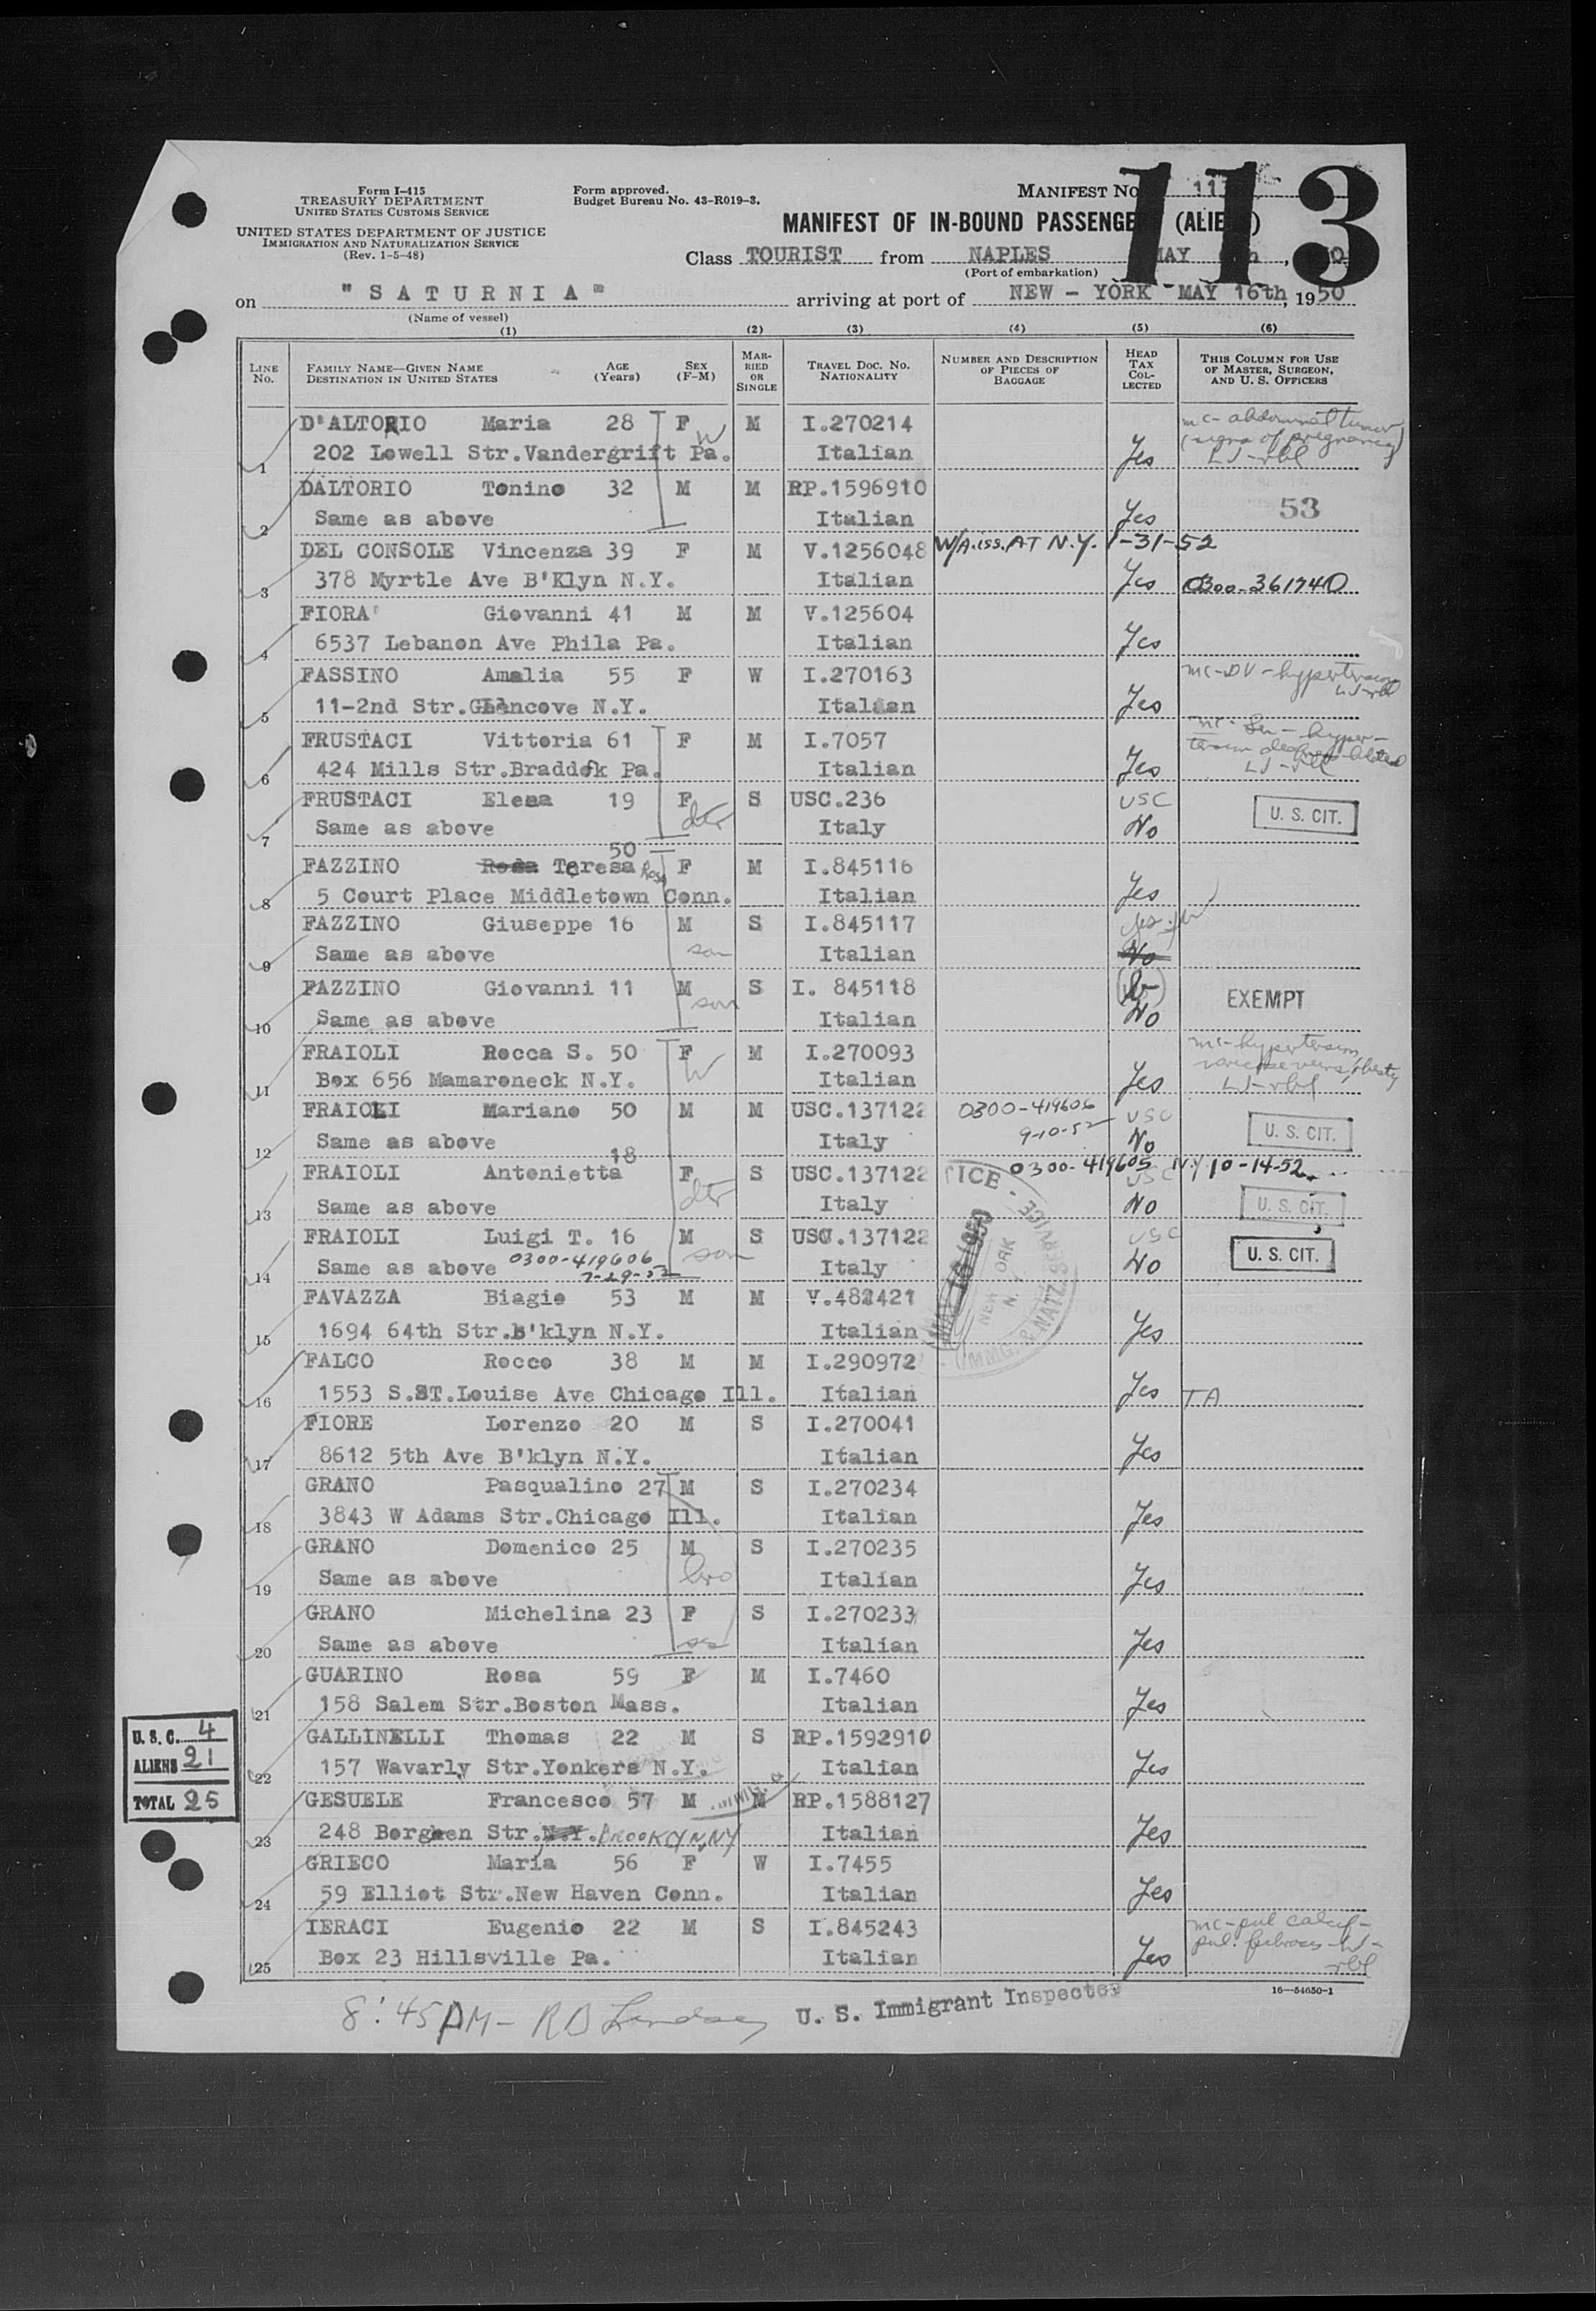 Form I-415
TREASURY DEPARTMENT
UNITED STATES CUSTOMS SERVICE
UNITED STATES DEPARTMENT OF JUSTICE
IMMIGRATION AND NATURALIZATION SERVICE
(Rev. 1-5-48)
Form approved.
Budget Bureau No. 43-R019-3.
MANIFEST NO. 113
113
MANIFEST OF IN-BOUND PASSENGERS (ALIENS)
Class TOURIST from NAPLES MAY
(Port of embarkation)
on "SATURNIA" arriving at port of NEW - YORK - MAY 16th, 1950
(Name of vessel)
(1) (2) (3) (4) (5) (6)
LINE No. FAMILY NAME—GIVEN NAME DESTINATION IN UNITED STATES AGE (Years) SEX (F-M) MARRIED OR SINGLE TRAVEL DOC. NO. NATIONALITY NUMBER AND DESCRIPTION OF PIECES OF BAGGAGE HEAD TAX COLLECTED THIS COLUMN FOR USE OF MASTER, SURGEON, AND U. S. OFFICERS
D'ALTORIO Maria 28 F W M I.270214 mc- abdominal tumor (signs of pregnancy)
1 202 Lowell Str.Vandergrift Pa. Italian Yes LJ-rbl
DALTORIO Tonino 32 M M RP.1596910
2 Same as above Italian Yes 53
DEL CONSOLE Vincenza 39 F M V.1256048 W/A.iss.AT N.Y. 1-31-52
3 378 Myrtle Ave B'Klyn N.Y. Italian Yes 0300-361740
FIORA' Giovanni 41 M M V.125604
4 6537 Lebanon Ave Phila Pa. Italian Yes
FASSINO Amalia 55 F W I.270163 mc-DV-hypertension
5 11-2nd Str.Glencove N.Y. Italian Yes LJ-rbl
FRUSTACI Vittoria 61 F M I.7057 mc- Sen- hyper-
6 424 Mills Str.Braddok Pa. Italian Yes LJ-rbl
FRUSTACI Elena 19 F S USC.236 USC
7 Same as above dtr Italy No U. S. CIT.
50
FAZZINO Rosa Teresa Rosa F M I.845116
8 5 Court Place Middletown Conn. Italian Yes
FAZZINO Giuseppe 16 M S I.845117 Yes
9 Same as above son Italian No
FAZZINO Giovanni 11 M S I. 845118
10 Same as above son Italian No EXEMPT
FRAIOLI Rocca S. 50 F W M I.270093 mc-hypertension
11 Box 656 Mamaroneck N.Y. Italian Yes varicose veins, obesity LJ-rbl
FRAIOLI Mariano 50 M M USC.137122 0300-419606 USC
12 Same as above Italy 9-10-52 No U. S. CIT.
18
FRAIOLI Antonietta F S USC.137122 0300-419605 N.Y 10-14-52 USC
13 Same as above dtr Italy No U. S. CIT.
FRAIOLI Luigi T. 16 M S USC.137122 USC
14 Same as above 0300-419606 7-29-52 son Italy No U. S. CIT.
FAVAZZA Biagio 53 M M V.482421
15 1694 64th Str.B'klyn N.Y. Italian Yes
FALCO Rocco 38 M M I.290972
16 1553 S.ST.Louise Ave Chicago Ill. Italian Yes TA
FIORE Lorenzo 20 M S I.270041
17 8612 5th Ave B'klyn N.Y. Italian Yes
GRANO Pasqualino 27 M S I.270234
18 3843 W Adams Str.Chicago Ill. Italian Yes
GRANO Domenico 25 M S I.270235
19 Same as above bro Italian Yes
GRANO Michelina 23 F S I.270233
20 Same as above sis Italian Yes
GUARINO Rosa 59 F M I.7460
21 158 Salem Str.Boston Mass. Italian Yes
GALLINELLI Thomas 22 M S RP.1592910
22 157 Wavarly Str.Yonkers N.Y. Italian Yes
GESUELE Francesco 57 M M RP.1588127
23 248 Bergen Str.N.Y. BROOKLYN,NY Italian Yes
GRIECO Maria 56 F W I.7455
24 59 Elliot Str.New Haven Conn. Italian Yes
IERACI Eugenio 22 M S I.845243 mc-pul calcif-
25 Box 23 Hillsville Pa. Italian Yes pul. fibrosis-LJ-rbl
U. S. C. 4
ALIENS 21
TOTAL 25
16—54650-1
8:45 PM- RD Lindsey U. S. Immigrant Inspector